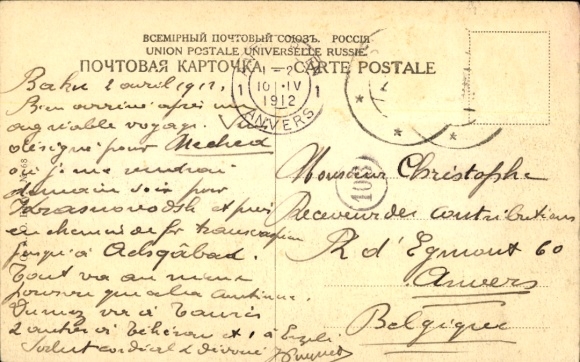 ВСЕМІРНЫЙ ПОЧТОВЫЙ СОЮЗЪ. РОССІЯ
UNION POSTALE UNIVERSELLE RUSSIE
ПОЧТОВАЯ КАРТОЧКА — CARTE POSTALE
1 10 IV 1
1912
ANVERS
1030
Baku 2 avril 1912.
Bien arrivé après un
agréable voyage.
désigné pour Meched
où je me rendrai
demain soir pour
Krasnovodsk et puis
en chemin de fer transcaspien
jusqu'à Achgâbad.
Tout va au mieux
pourvu que cela continue.
Dumez va à Tauris
2 autres à Téhéran et 1 à Enzeli
Salut cordial
Monsieur Christophe
Receveur des contributions
R d'Egmont 60
Anvers
Belgique